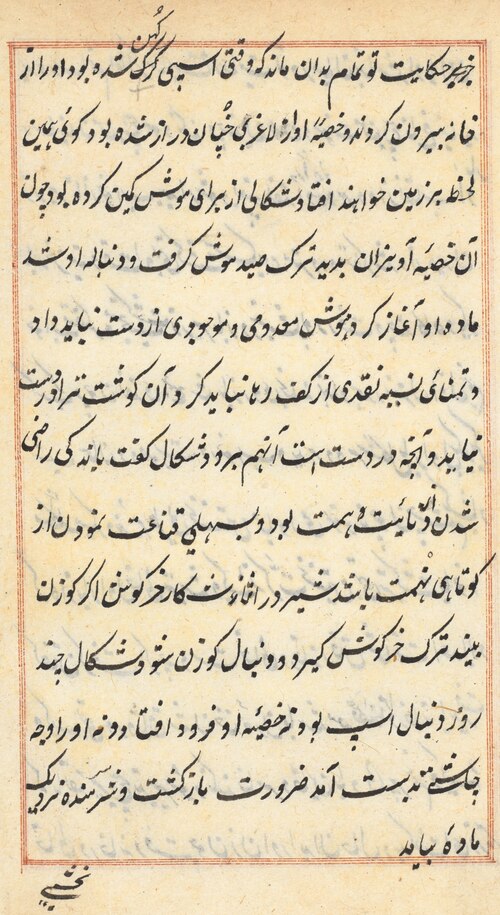 کهن
حکایت تو تمام بدان ماند که وقتی اسپی کرک شده بود او را از
خانه بیرون کردند و خصیهٔ او از لاغری چنان دراز شده بود کوئی همین
لحظه بر زمین خواهند افتاد شکالی از برای موش کمین کرده بود چون
آن خصیهٔ آویزان بدید ترک صید موش کرفت و دنباله او شد
ماده او آغاز کرد موش معدومی و موجودی از دست نباید داد
و تمنای نسیه نقدی از کف رها نباید کرد آن کوشت ترا در دست
نیاید و آنچه در دست است آنهم برود شکال کفت باندکی راضی
شدن از دنائیت همت بود و بسهلی قناعت نمودن از
کوتاهی نهمت باشد شیر در اثناء شکار خرکوش اکر کوزن
بیند ترک خرکوش کیرد و دنبال کوزن شود شکال چند
روز دنبال اسپ بود نه خصیهٔ او فرود افتاد و نه او را چه
چاشنی بدست آمد ضرورت باز کشت و شرمنده نزدیک
مادهٔ بیامد
نخشبی